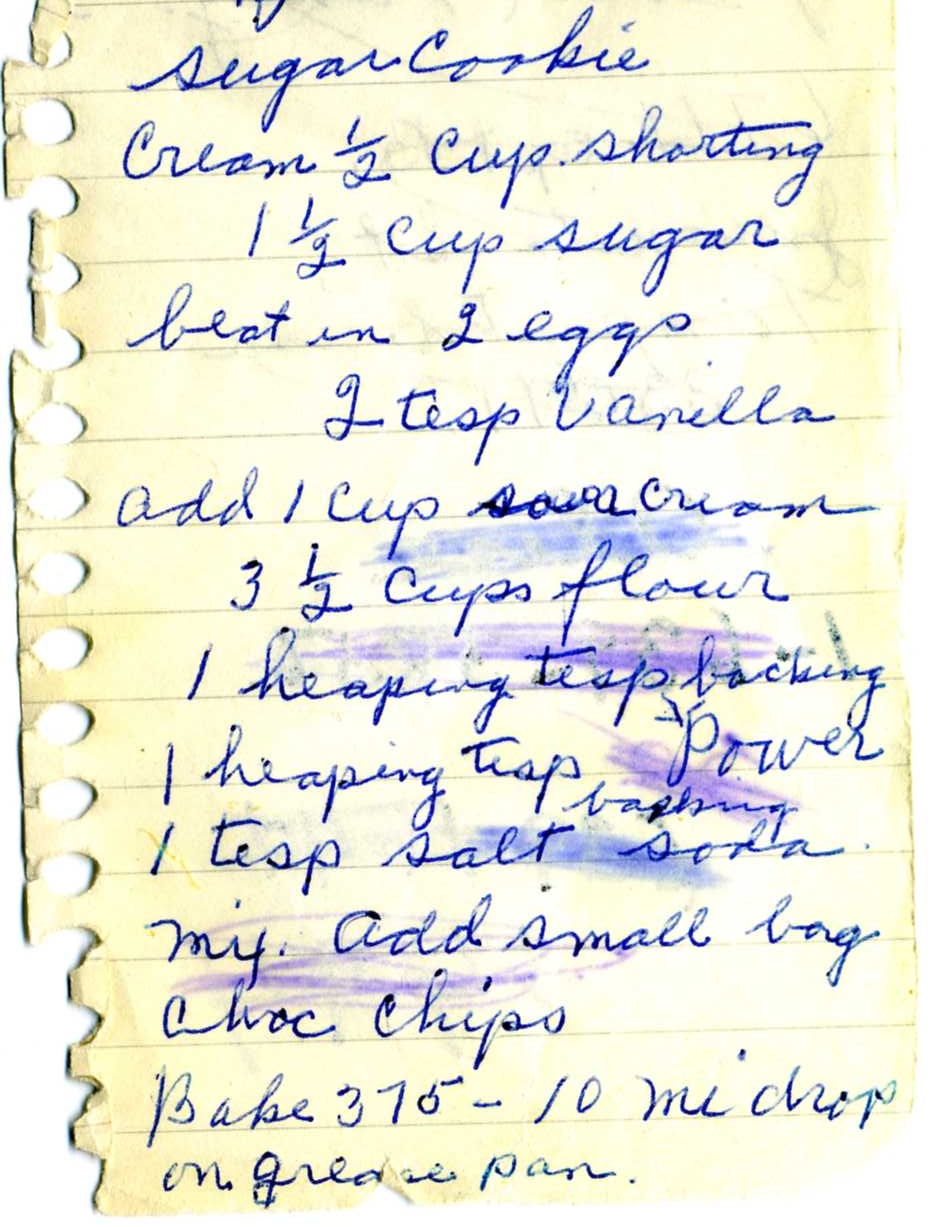 Sugar Cookie
Cream 1/2 Cup shorting
1 1/2 cup sugar
beat in 2 eggs
2 tesp Vanilla
add 1 Cup sour cream
3 1/2 cups flour
1 heaping tesp backing
Power
1 heaping tesp
backing
1 tesp salt soda
mix. Add small bag
choc chips
Bake 375 - 10 mi drop
on grease pan.